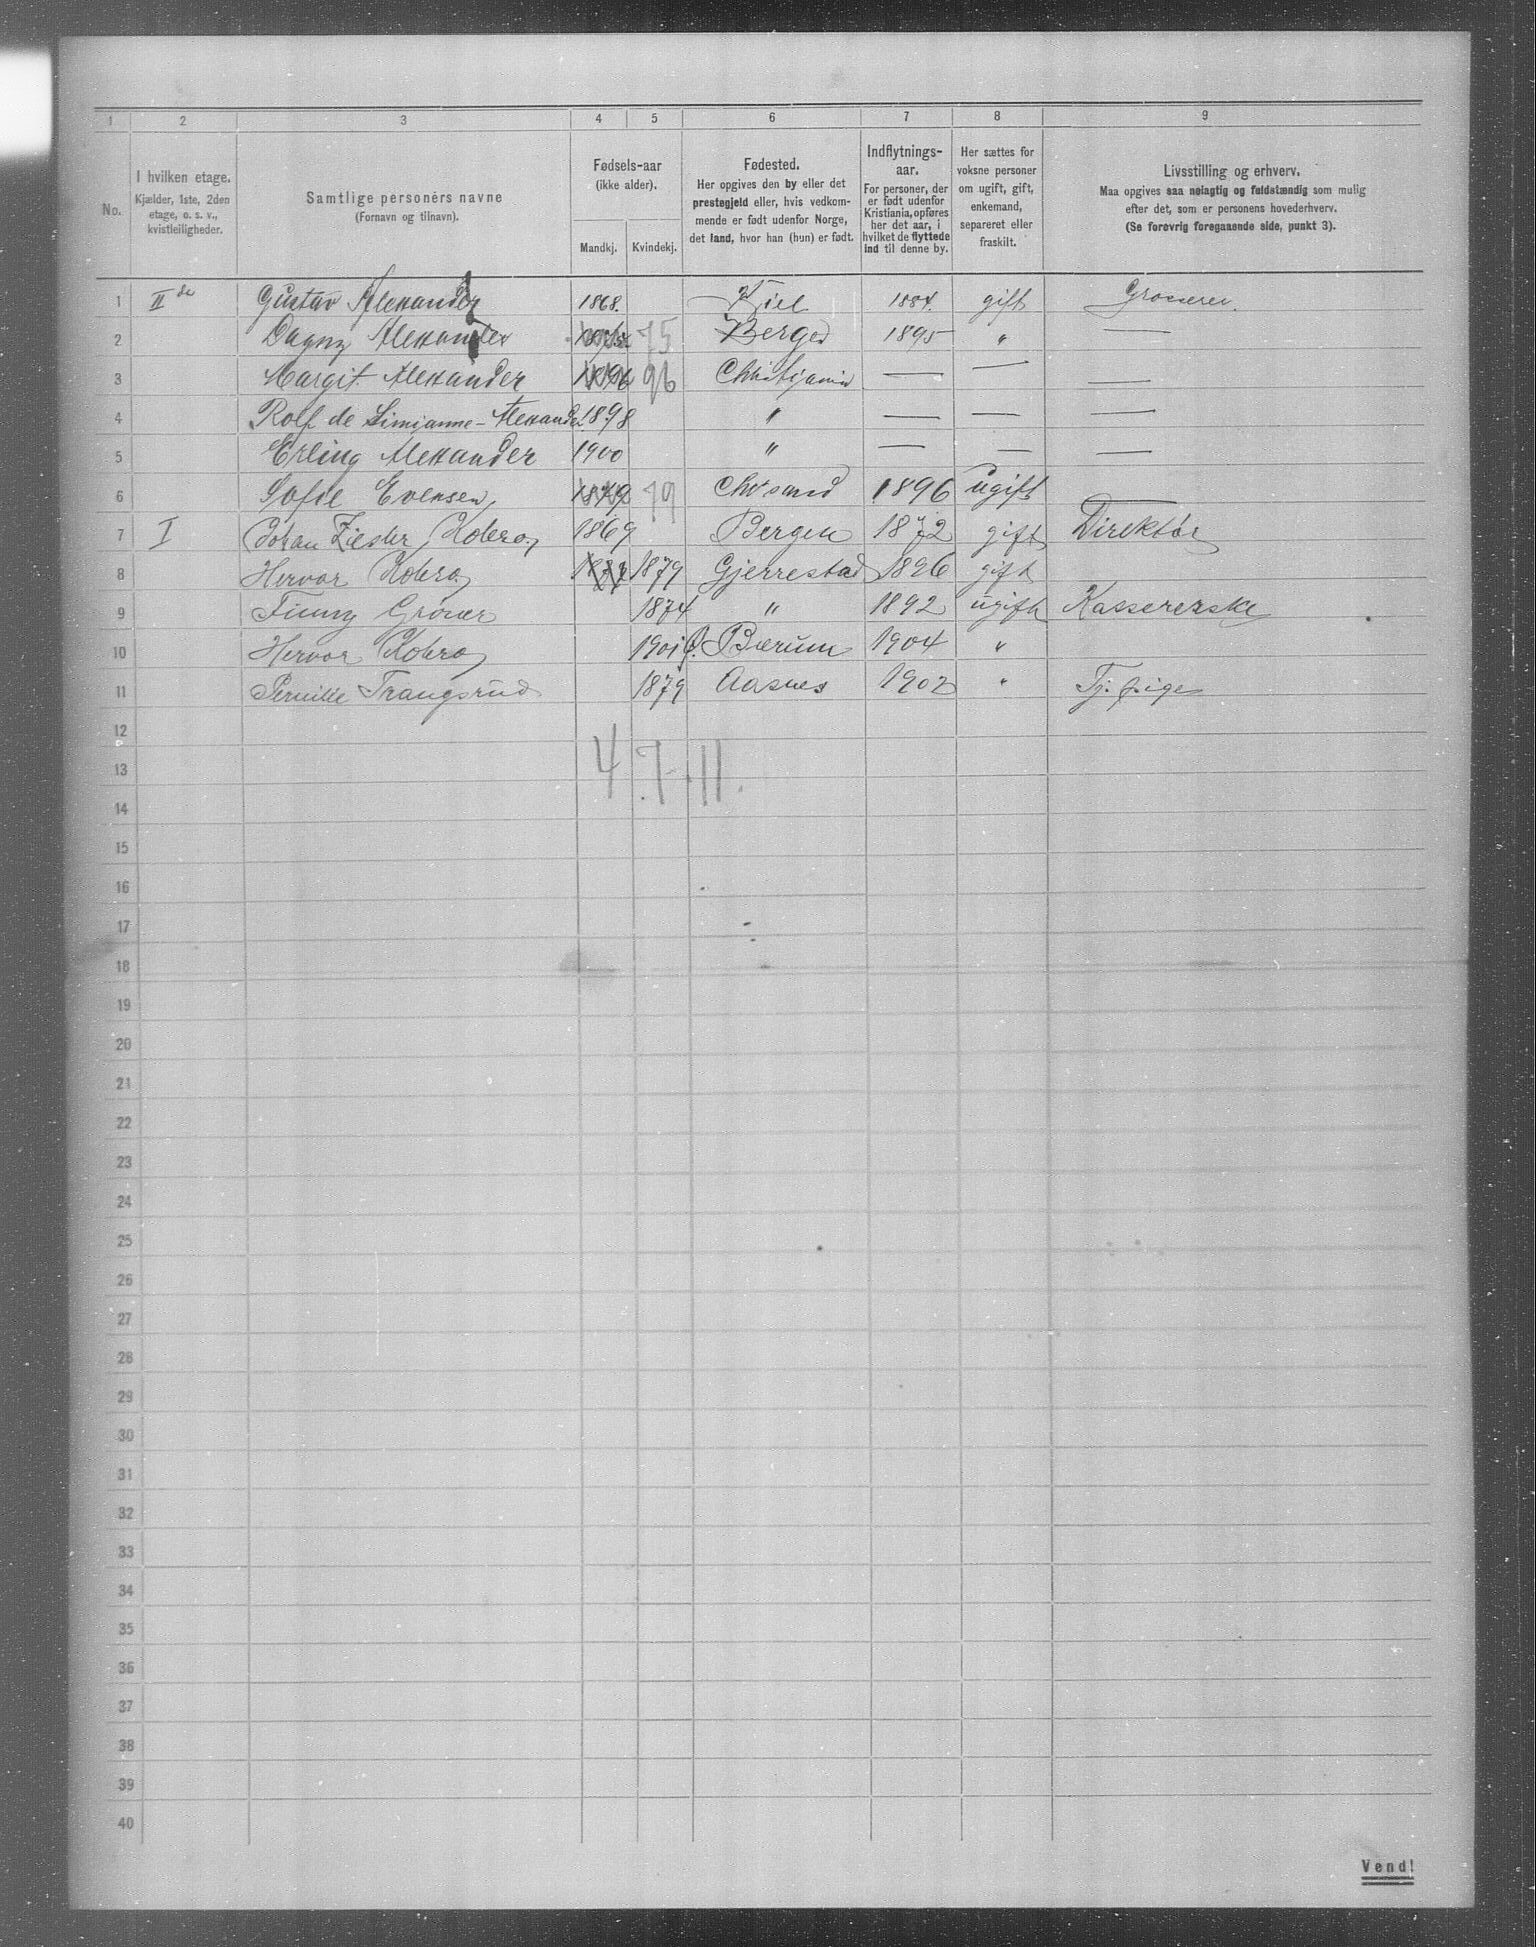 1 2 3 4 5 6 7 8 9
No.
I hvilken etage.
Kjælder, 1ste, 2den
etage, o. s. v.,
kvistleiligheder.
Samtlige personers navne
(Fornavn og tilnavn).
Fødsels-aar
(ikke alder).
Mandkj. Kvindekj.
Fødested.
Her opgives den by eller det
prestegjeld eller, hvis vedkom-
mende er født udenfor Norge,
det land, hvor han (hun) er født.
Indflytnings-
aar.
For personer, der
er født udenfor
Kristiania, opføres
her det aar, i
hvilket de flyttede
ind til denne by.
Her sættes for
voksne personer
om ugift, gift,
enkemand,
separeret eller
fraskilt.
Livsstilling og erhverv.
Maa opgives saa nøiagtig og fuldstændig som mulig
efter det, som er personens hovederhverv.
(Se forøvrig foregaaende side, punkt 3).
1 II de Gustav Alexander 1868. Kiel 1884. gift Grosserer.
2 Dagny Alexander 75 Bergen 1895 " —
3 Margit Alexander 1896 96 Christjania — — —
4 Rolf de Limjanne - Alexander 1898 " — — —
5 Erling Alexander 1900 " — — —
6 Sofie Evensen 1879 79 Chrsand 1896 ugift —
7 I Johan Ziesler Kobro 1869 Bergen 1872 gift Direktør
8 Hervor Kobro 1879 Gjerrestad 1896 gift
9 Finny Grøver 1874 " 1892 ugift Kassererske
10 Hervor Kobro 1901 Bærum 1904 "
11 Pernille Trangsrud 1879 Aasnes 1902 " Tj. pige
12
4 7 - 11.
13
14
15
16
17
18
19
20
21
22
23
24
25
26
27
28
29
30
31
32
33
34
35
36
37
38
39
40
Vend!